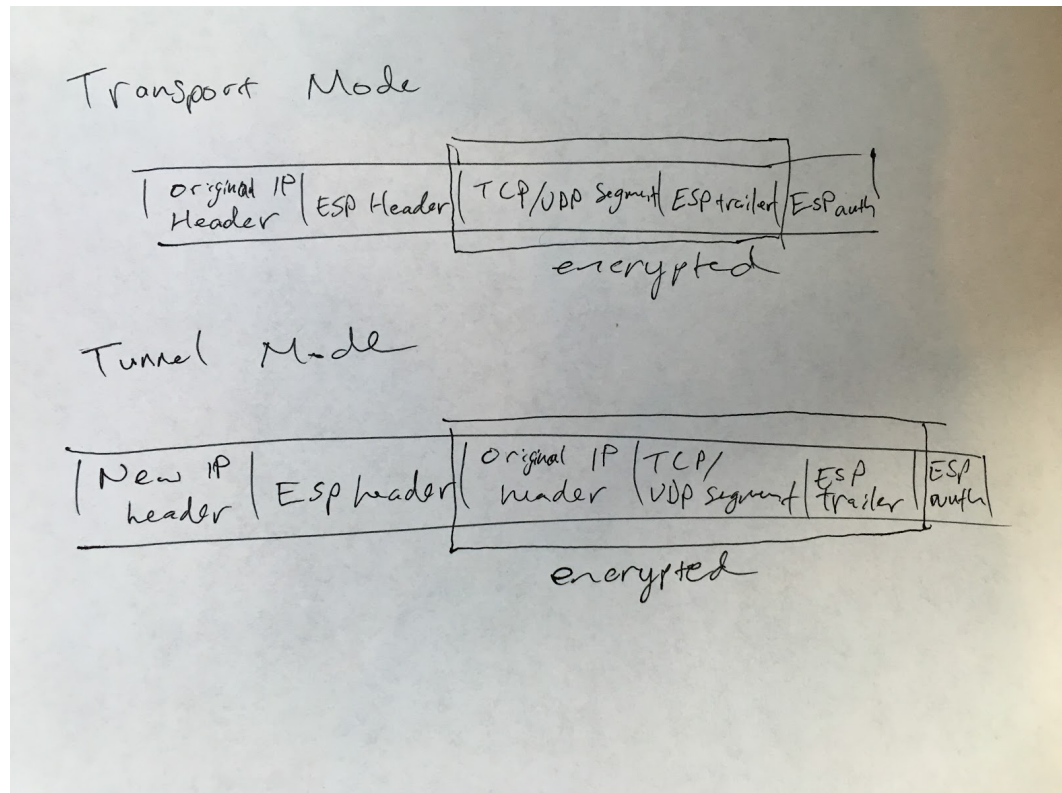 Transport Mode
Original IP Header | ESP Header | TCP/UDP Segment | ESP trailer | ESP auth
encrypted
Tunnel Mode
New IP header | ESP header | Original IP header | TCP/UDP segment | ESP trailer | ESP auth
encrypted